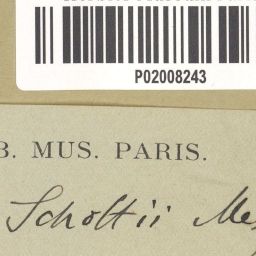 P02008243
B. MUS. PARIS.
Schottii